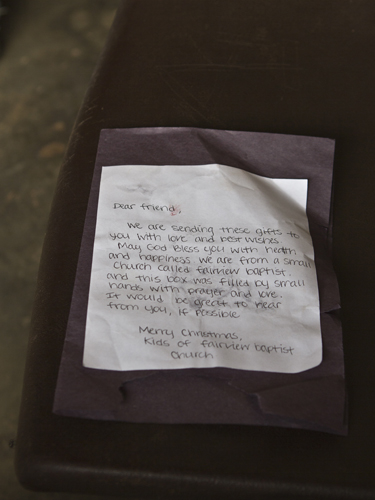 Dear friend,
We are sending these gifts to
you with love and best wishes.
May God Bless you with health
and happiness we are from a small
Church called fairview baptist.
and this box was filled by small
hands with prayer and love.
It would be great to hear
from you, if possible.
Merry Christmas,
kids of fairview baptist
Church